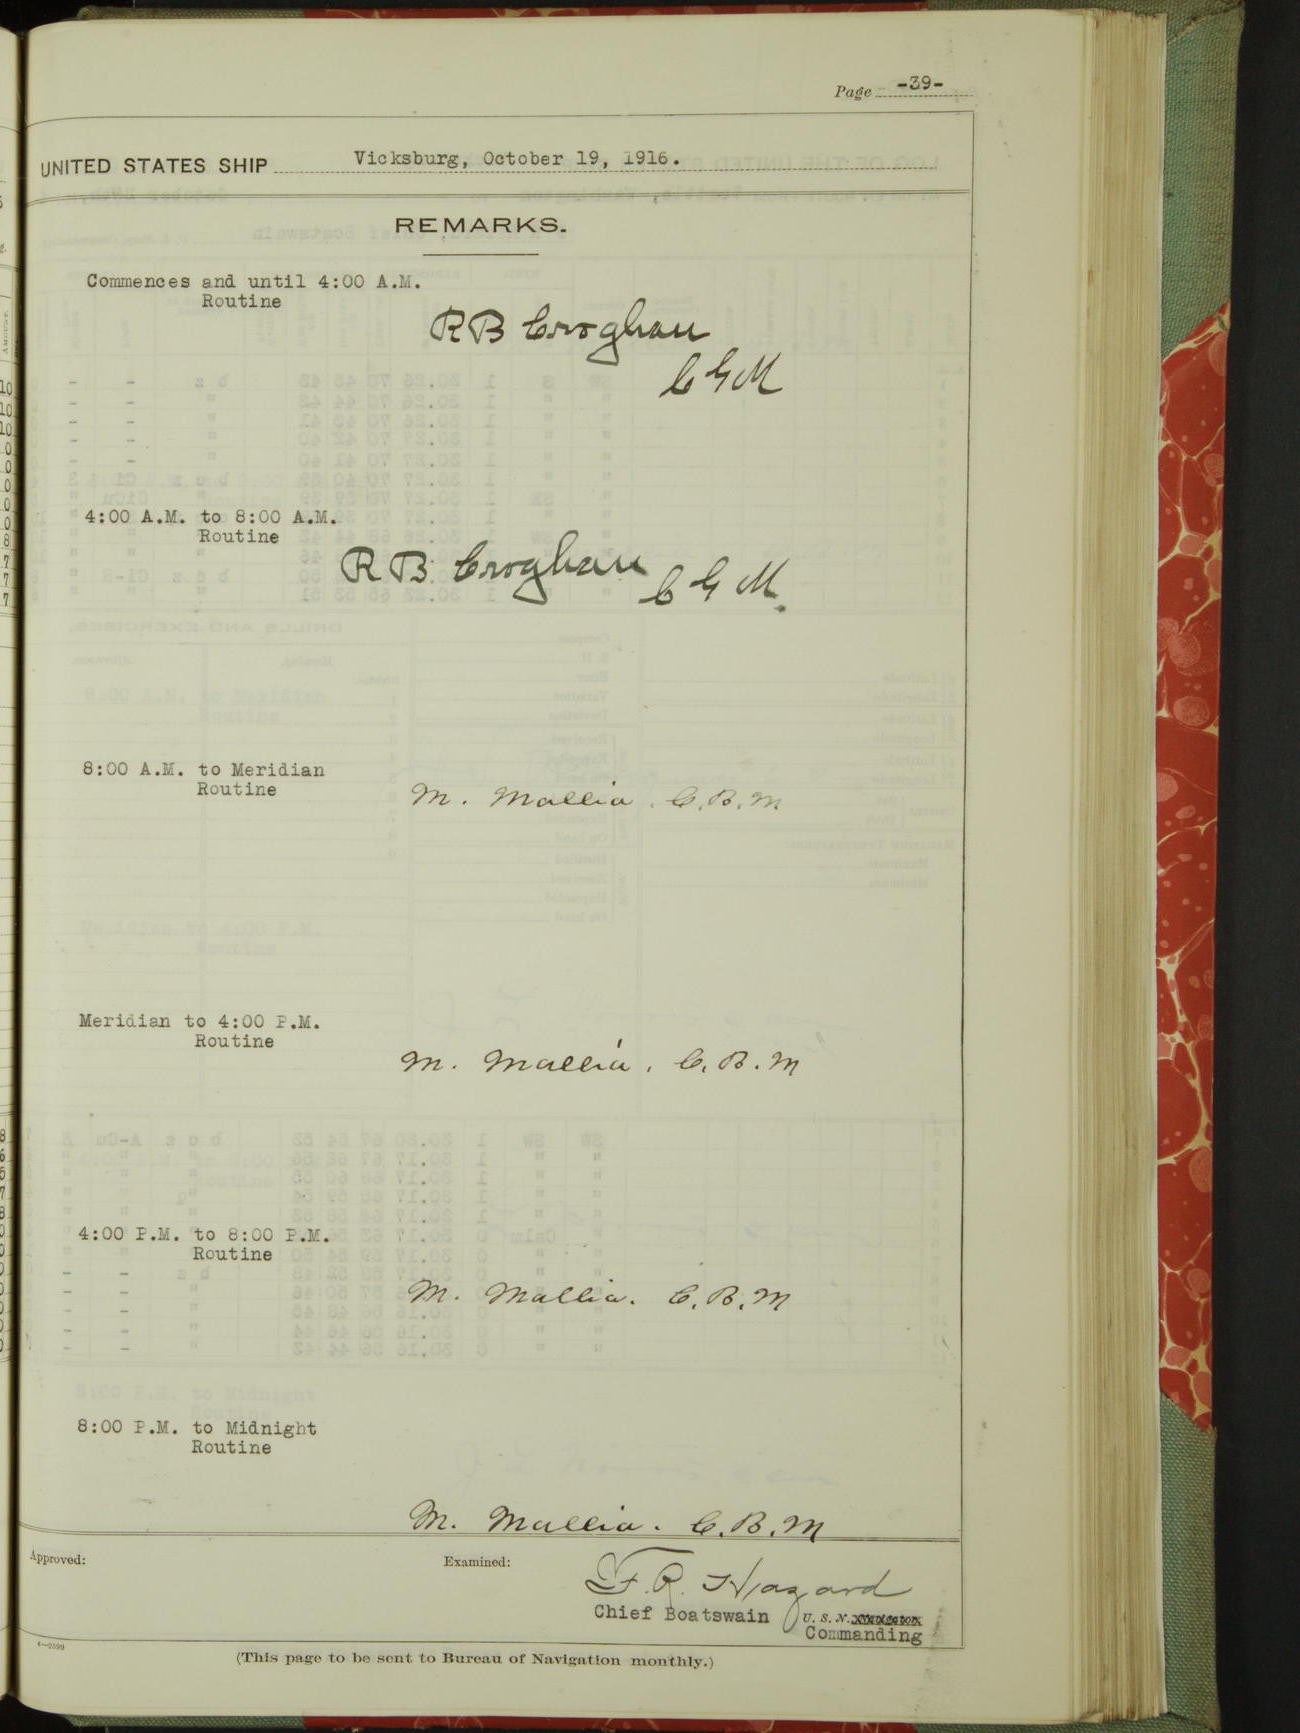 Page -39-
UNITED STATES SHIP Vicksburg, October 19, 1916.
REMARKS.
Commences and until 4:00 A.M.
Routine
R B Croghan
C G M
4:00 A.M. to 8:00 A.M.
Routine
R B Croghan C G M.
8:00 A.M. to Meridian
Routine
M. Mallia. C.B.M
Meridian to 4:00 P.M.
Routine
M. Mallia. C.B.M
4:00 P.M. to 8:00 P.M.
Routine
M. Mallia. C.B.M
8:00 P.M. to Midnight
Routine
M. Mallia. C.B.M
Approved: Examined:
F. R. Hazard
Chief Boatswain U. S. N.
Commanding
(This page to be sent to Bureau of Navigation monthly.)